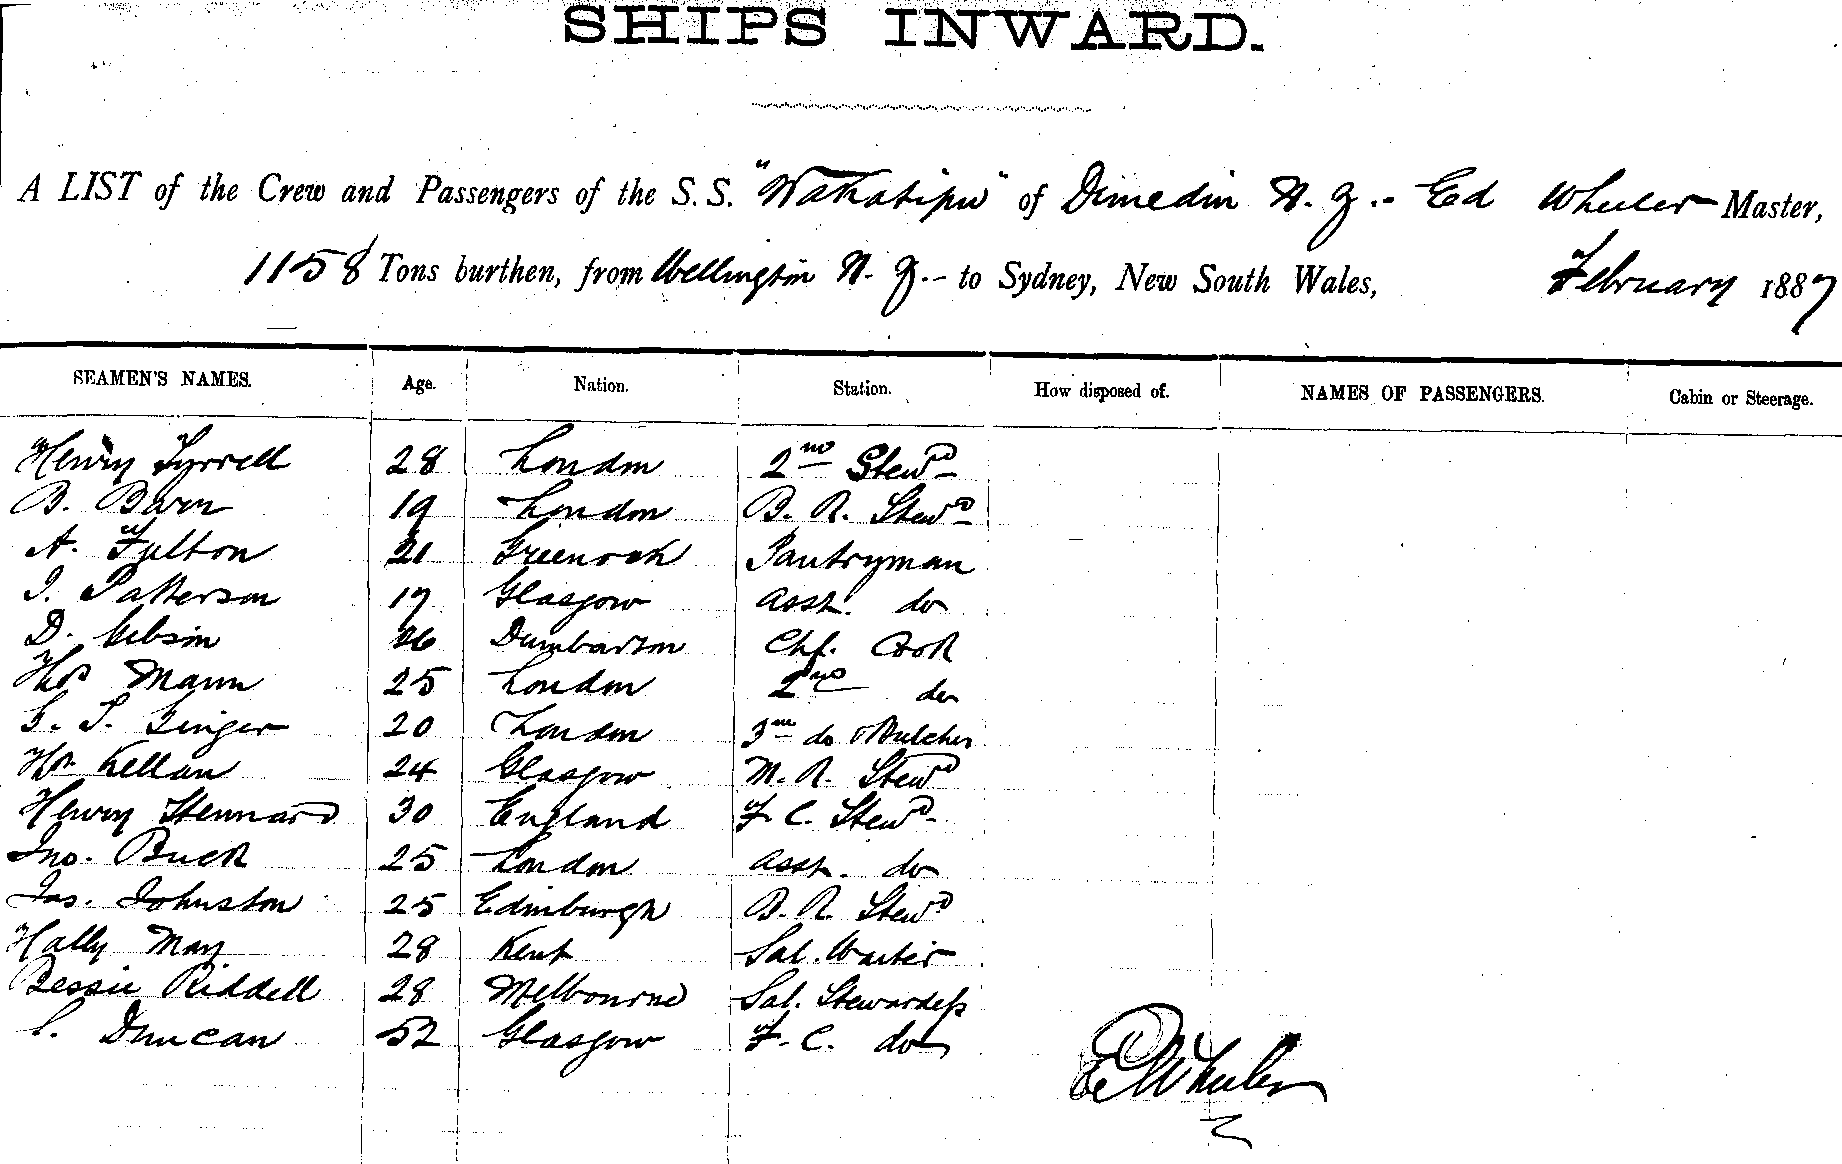 SHIPS INWARD.
A LIST of the Crew and Passengers of the S.S. "Wakatipu" of Dunedin N.Z.- Ed Wheeler Master,
1158 Tons burthen, from Wellington N.Z.- to Sydney, New South Wales, February 1887
SEAMEN'S NAMES. Age. Nation. Station. How disposed of. NAMES OF PASSENGERS. Cabin or Steerage.
Henry Tyrrell 28 London 2nd Stewd
B. 19 London B. R. Stewd
A. Fulton 21 Greenock Pantryman
J. Patterson 17 Glasgow asst. do
D. Gibson 26 Dumbarton Chf. Cook
Thos Mann 25 London 2nd do
G. P. Ginger 20 London 3rd do & Butcher
Kellan 24 Glasgow M. R. Stewd
Henry Stennard 30 England F. C. Stewd
Jno. Buck 25 London asst. do
Jas. Johnston 25 Edinburgh B. R. Stewd
Hally May 28 Kent Sal. Waiter
Bessie Riddell 28 Melbourne Sal. Stewardess
Duncan 52 Glasgow F. C. do
Ed Wheeler